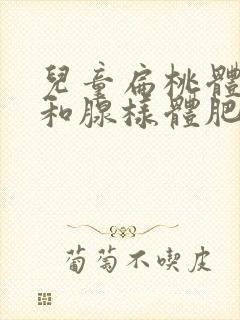 兒童扁桃體
和腺樣體肥
葡萄不喫皮